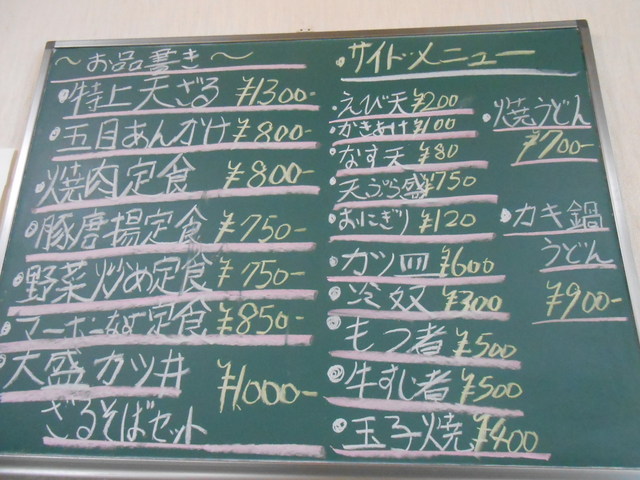 〜お品書き〜
・特上天ざる ¥1300-
・五目あんかけ ¥800-
・焼肉定食 ¥800-
・豚唐揚定食 ¥750-
・野菜炒め定食 ¥750-
・マーボーなす定食 ¥850-
・大盛カツ丼
ざるそばセット ¥1000-
・サイド・メニュー
・えび天 ¥200
・かきあげ ¥100
・なす天 ¥80
・天ぷら盛 ¥750
・おにぎり ¥120
・カツ皿 ¥600
◎冷奴 ¥300
◎もつ煮 ¥500
◎牛すじ煮 ¥500
◎玉子焼 ¥400
・焼うどん
¥700-
・カキ鍋
うどん
¥900-